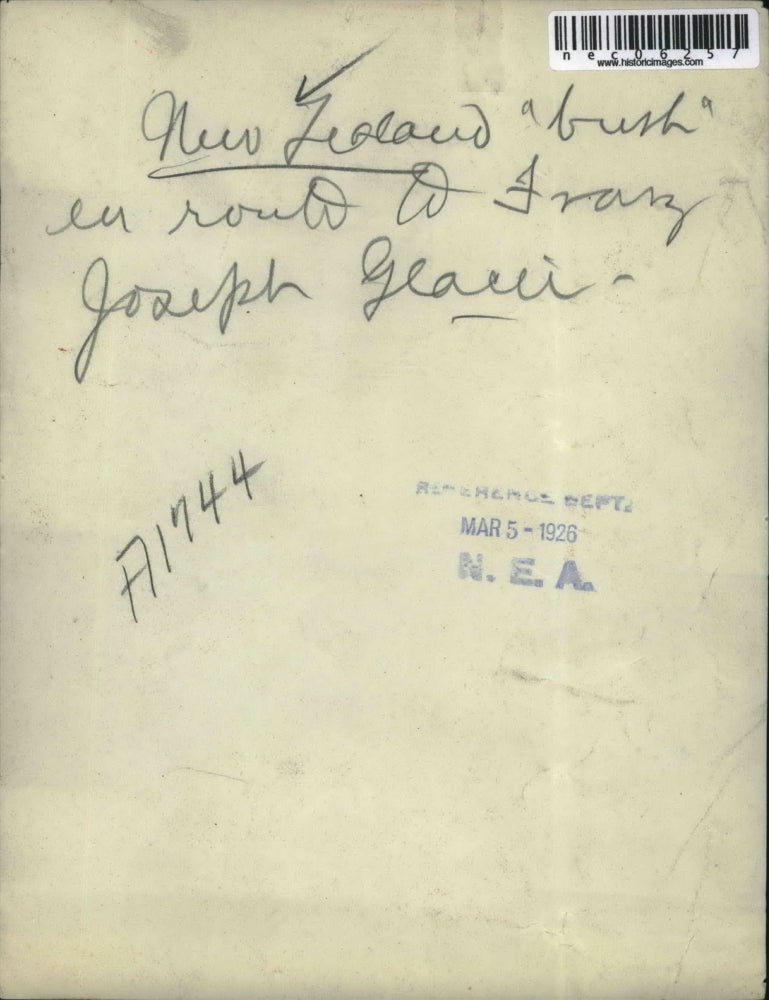 nec06257
www.historicimages.com
New Zealand "bush"
en route to Franz
Joseph Glacier -
A1744
REFERENCE DEPT.
MAR 5 - 1926
N. E. A.